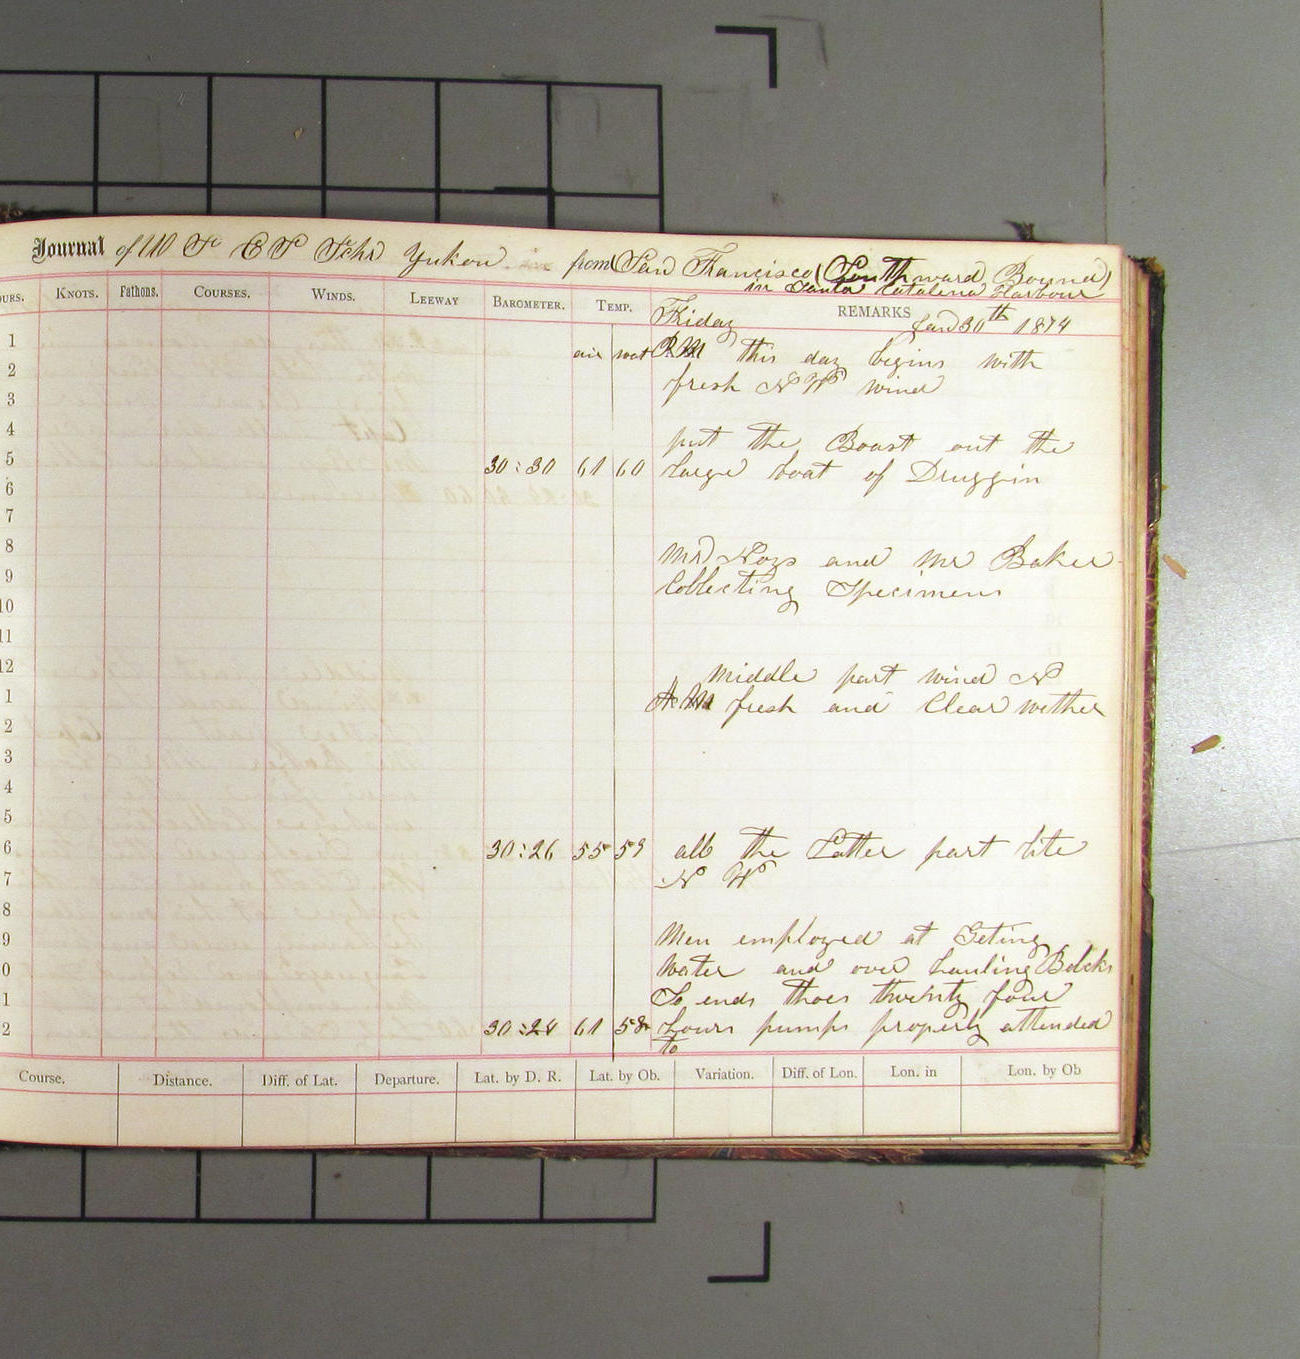 Journal of U S C S Schr Yukon from San Francisco (Southward Bound)
in Santa Catalena Harbour
OURS. KNOTS. Fathoms. COURSES. WINDS. LEEWAY BAROMETER. TEMP. REMARKS
Friday Jan 30th 1874
1 air wat P.M this day begins with
2 fresh N W wind
3
4 put the Boast out the
5 30:30 61 60 large boat of Druggin
6
7
8 Mr and Mr Baker
9 Collecting Specimens
10
11
12 middle part wind N
1 A.M fresh and Clear wether
2
3
4
5
6 30:26 55 59 all the Latter part lite
7 N W
8
9 Men employed at Geting
0 Water and over hauling Blocks
1 So ends thoes twenty four
2 30:24 61 58 hours pumps properly attended
to
Course. Distance. Diff. of Lat. Departure. Lat. by D. R. Lat. by Ob. Variation. Diff. of Lon. Lon. in Lon. by Ob